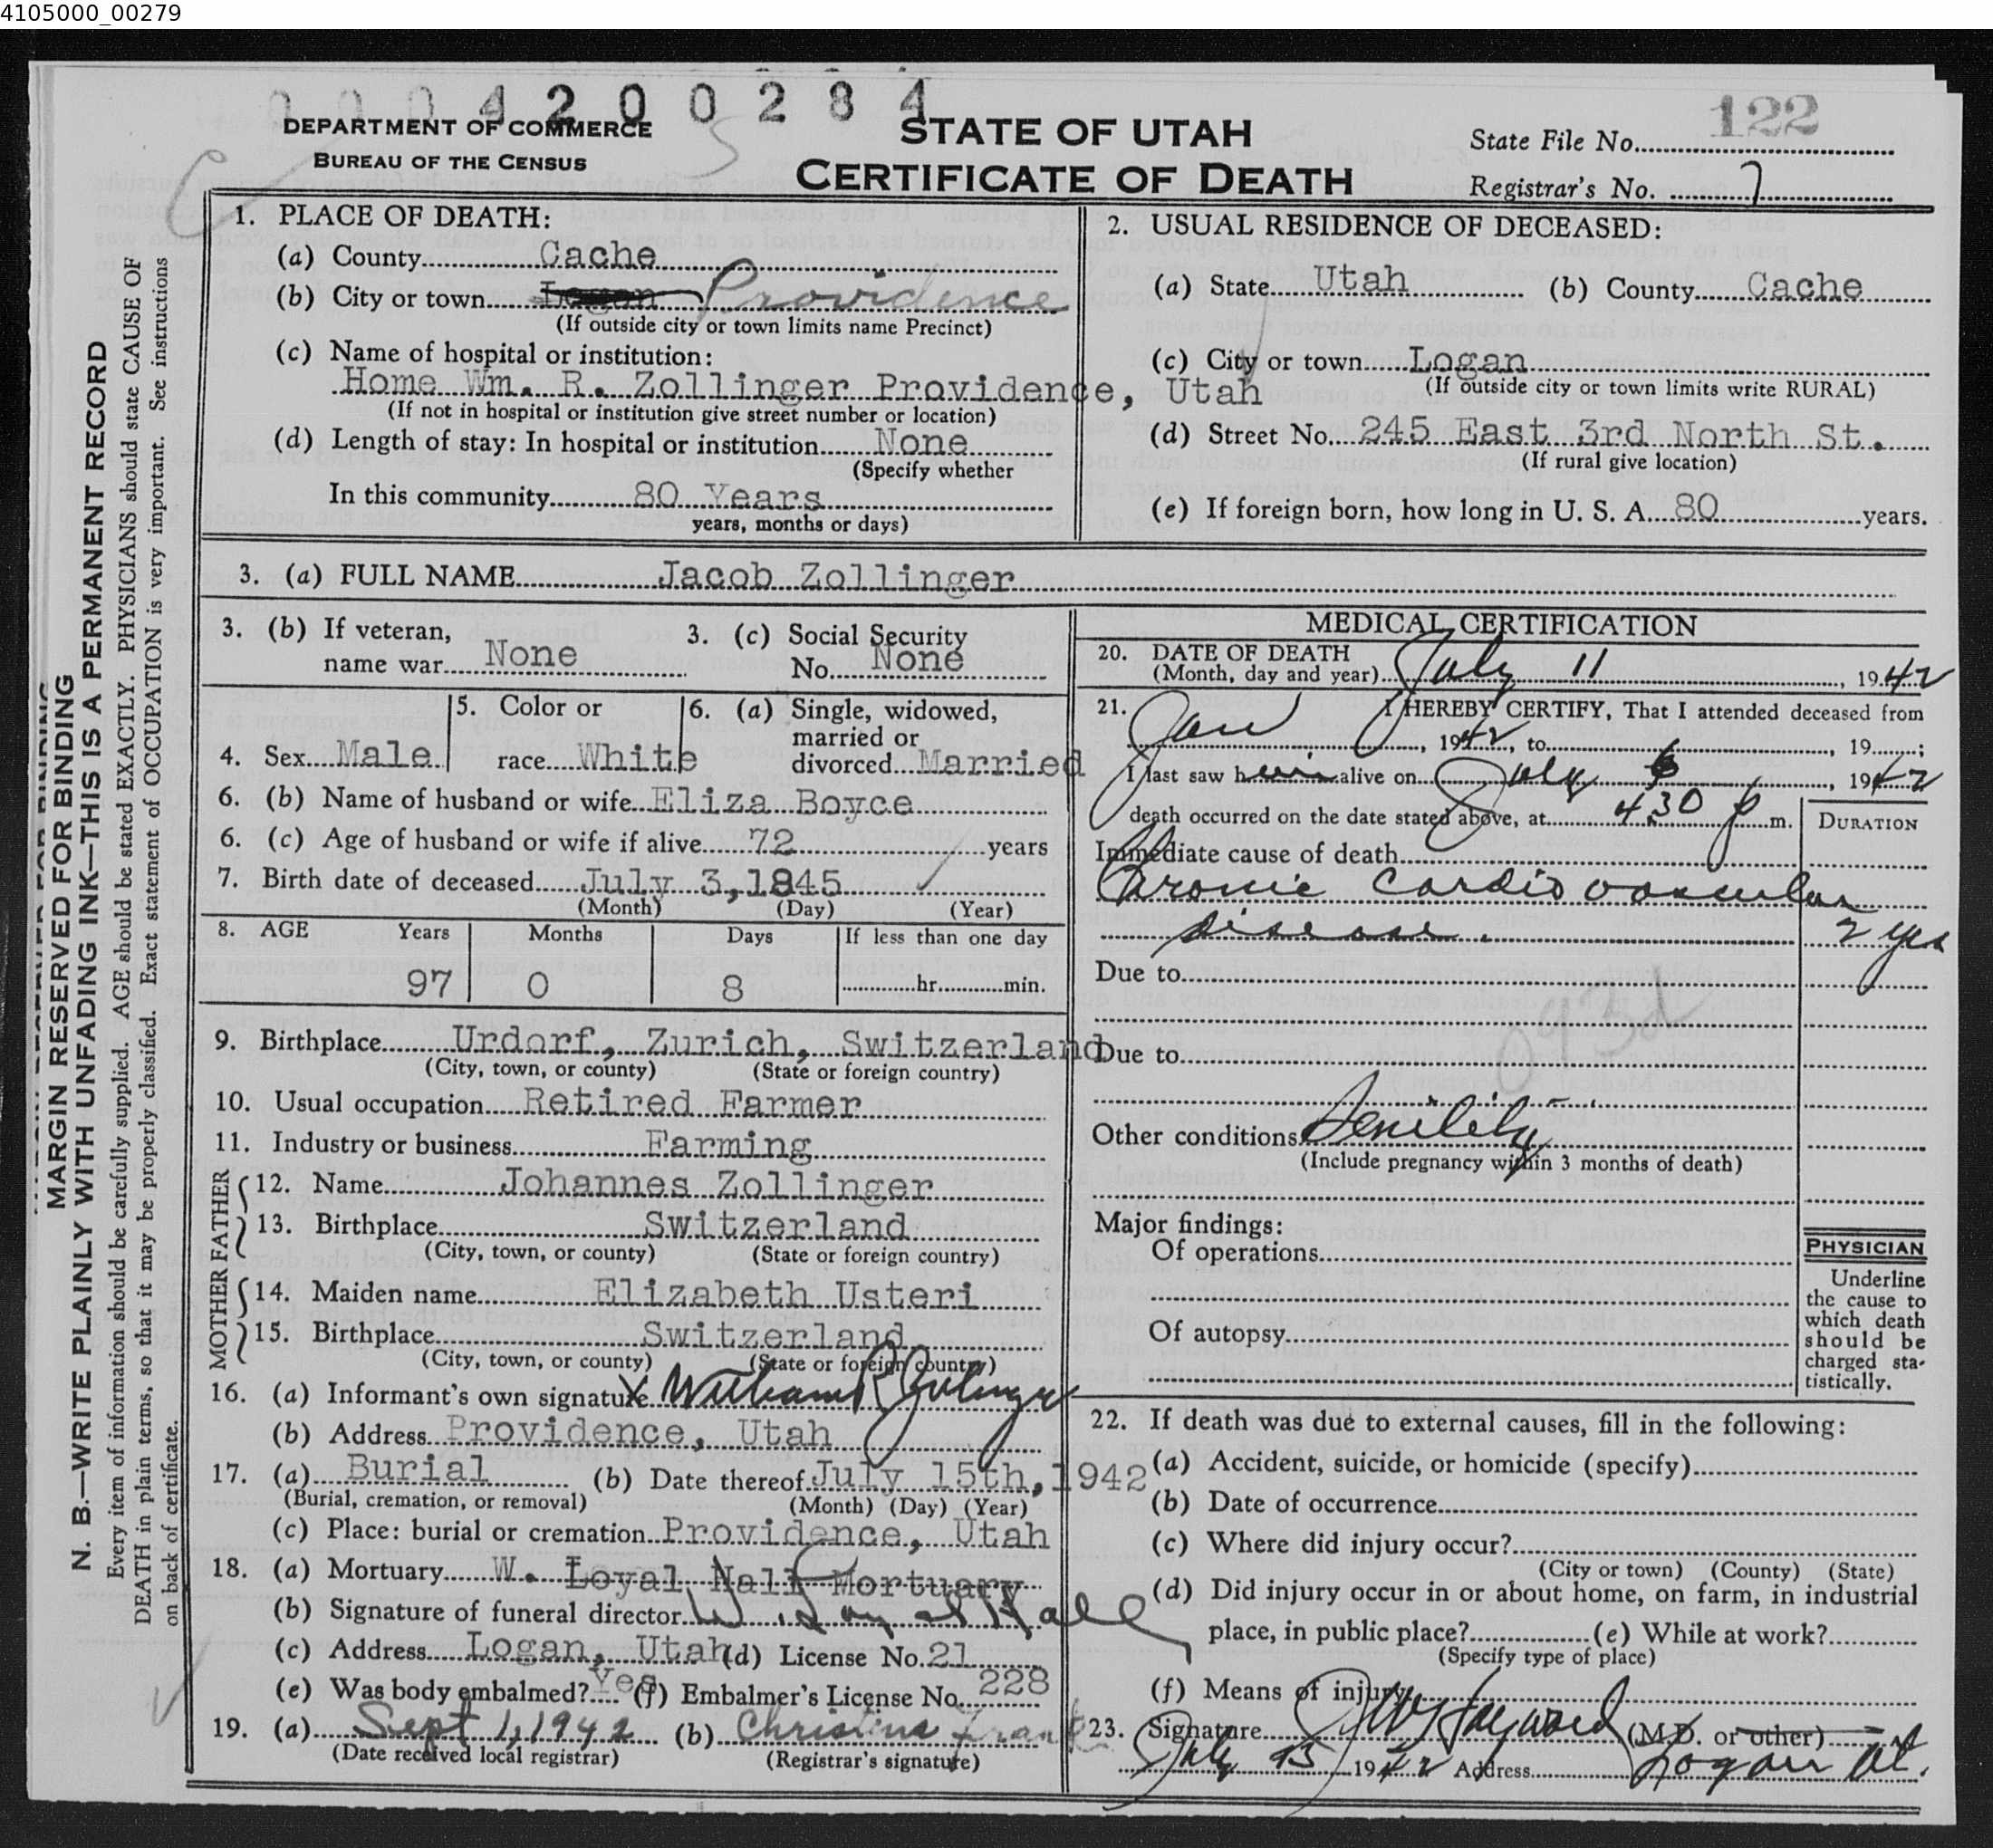 4105000_00279
0004200284
DEPARTMENT OF COMMERCE
BUREAU OF THE CENSUS
STATE OF UTAH
CERTIFICATE OF DEATH
122
State File No.
Registrar's No. 7
MARGIN RESERVED FOR BINDING
N. B.—WRITE PLAINLY WITH UNFADING INK—THIS IS A PERMANENT RECORD
Every item of information should be carefully supplied. AGE should be stated EXACTLY. PHYSICIANS should state CAUSE OF
DEATH in plain terms, so that it may be properly classified. Exact statement of OCCUPATION is very important. See instructions
on back of certificate.
1. PLACE OF DEATH:
(a) County Cache
(b) City or town Logan Providence
(If outside city or town limits name Precinct)
(c) Name of hospital or institution:
Home Wm. R. Zollinger Providence, Utah
(If not in hospital or institution give street number or location)
(d) Length of stay: In hospital or institution None
(Specify whether
In this community 80 Years
years, months or days)
2. USUAL RESIDENCE OF DECEASED:
(a) State Utah (b) County Cache
(c) City or town Logan
(If outside city or town limits write RURAL)
(d) Street No. 245 East 3rd North St.
(If rural give location)
(e) If foreign born, how long in U. S. A. 80 years.
3. (a) FULL NAME Jacob Zollinger
3. (b) If veteran,
name war None
3. (c) Social Security
No. None
4. Sex Male
5. Color or
race White
6. (a) Single, widowed,
married or
divorced Married
6. (b) Name of husband or wife Eliza Boyce
6. (c) Age of husband or wife if alive 72 years
7. Birth date of deceased July 3, 1845
(Month) (Day) (Year)
8. AGE Years Months Days If less than one day
97 0 8 hr. min.
9. Birthplace Urdorf, Zurich, Switzerland
(City, town, or county) (State or foreign country)
10. Usual occupation Retired Farmer
11. Industry or business Farming
FATHER
12. Name Johannes Zollinger
13. Birthplace Switzerland
(City, town, or county) (State or foreign country)
MOTHER
14. Maiden name Elizabeth Usteri
15. Birthplace Switzerland
(City, town, or county) (State or foreign country)
16. (a) Informant's own signature X William R Zolinger
(b) Address Providence, Utah
17. (a) Burial (b) Date thereof July 15th, 1942
(Burial, cremation, or removal) (Month) (Day) (Year)
(c) Place: burial or cremation Providence, Utah
18. (a) Mortuary W. Loyal Hall Mortuary
(b) Signature of funeral director W. Loyal Hall
(c) Address Logan, Utah (d) License No. 21
(e) Was body embalmed? Yes (f) Embalmer's License No. 228
19. (a) Sept 1, 1942 (b) Christina Frank
(Date received local registrar) (Registrar's signature)
MEDICAL CERTIFICATION
20. DATE OF DEATH
(Month, day and year) July 11, 1942
21. I HEREBY CERTIFY, That I attended deceased from
Jan, 1942, to , 19 ;
I last saw him alive on July 6, 1942
death occurred on the date stated above, at 430 p m.
DURATION
Immediate cause of death
Chronic Cardio vascular
disease. 2 yrs
Due to
093d
Due to
Other conditions Senility
(Include pregnancy within 3 months of death)
Major findings:
Of operations
Of autopsy
PHYSICIAN
Underline
the cause to
which death
should be
charged sta-
tistically.
22. If death was due to external causes, fill in the following:
(a) Accident, suicide, or homicide (specify)
(b) Date of occurrence
(c) Where did injury occur?
(City or town) (County) (State)
(d) Did injury occur in or about home, on farm, in industrial
place, in public place? (e) While at work?
(Specify type of place)
(f) Means of injury
23. Signature Hayward (M.D. or other)
July 15 1942 Address Logan Ut.